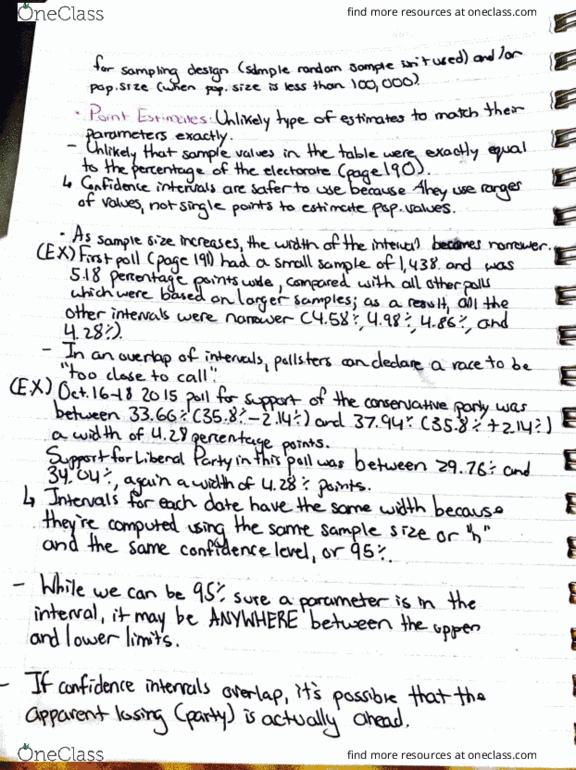 OneClass
find more resources at oneclass.com
for sampling design (simple random sample isn't used) and/or
pop. size (when pop. size is less than 100,000)
• Point Estimates: Unlikely type of estimates to match their
parameters exactly.
- Unlikely that sample values in the table were exactly equal
to the percentage of the electorate (page 190).
↳ Confidence intervals are safer to use because they use ranges
of values, not single points to estimate pop. values.
• As sample size increases, the width of the interval becomes narrower.
(EX) First poll (page 190) had a small sample of 1,438 and was
5.18 percentage points wide, compared with all other polls
which were based on larger samples; as a result, all the
other intervals were narrower (4.58%, 4.98%, 4.86%, and
4.28%).
- In an overlap of intervals, pollsters can declare a race to be
"too close to call".
(EX) Oct. 16-18 2015 poll for support of the conservative party was
between 33.66% (35.8% - 2.14%) and 37.94% (35.8% + 2.14%)
a width of 4.28 percentage points.
Support for Liberal Party in this poll was between 29.76% and
34.04%, again a width of 4.28% points.
↳ Intervals for each date have the same width because
they're computed using the same sample size or "n"
and the same confidence level, or 95%.
- While we can be 95% sure a parameter is in the
interval, it may be ANYWHERE between the upper
and lower limits.
- If confidence intervals overlap, it's possible that the
apparent losing (party) is actually ahead.
OneClass
find more resources at oneclass.com